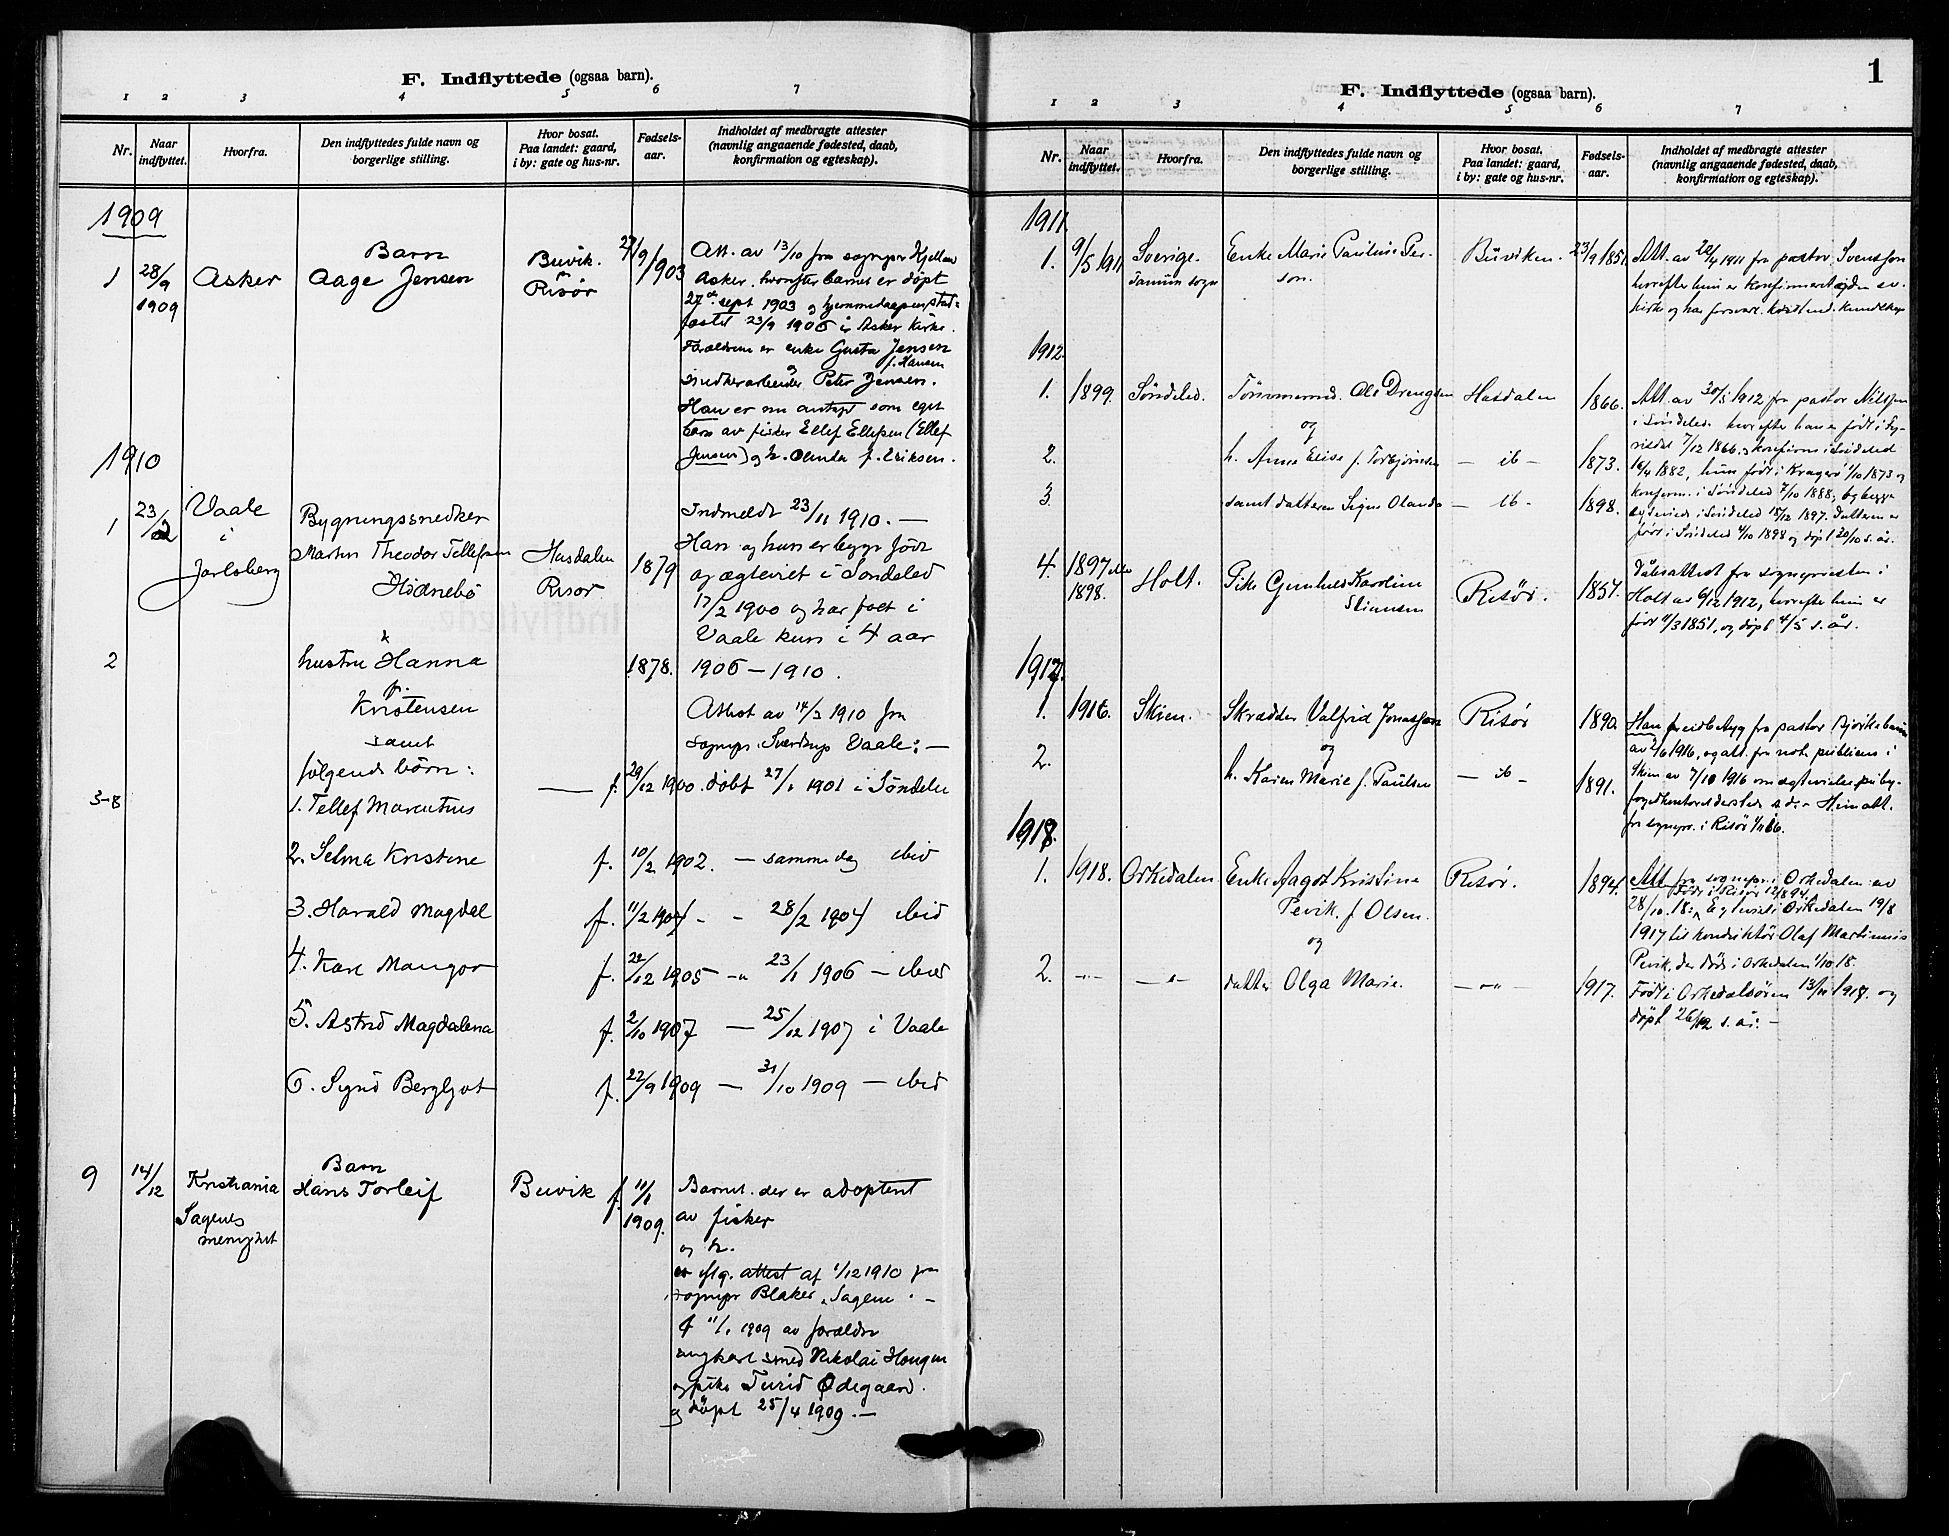 F. Indflyttede (ogsaa barn).
1 2 3 4 5 6 7
Nr. Naar indflyttet. Hvorfra. Den indflyttedes fulde navn og borgerlige stilling. Hvor bosat. Paa landet: gaard, i by: gate og hus-nr. Fødsels-aar. Indholdet af medbragte attester (navnlig angaaende fødested, daab, konfirmation og egteskap).
1909
1 28/9 1909 Asker Barn Aage Jensen Buvik. Risør 27/9 1903
Att. av 13/10 fra sognepr Kjellan
Asker, hvorefter barnet er døpt
27de sept 1903 og hjemmedaapen stad-
fæstet 23/9 1906 i Asker kirke.
Forældrene er enke Gusta Jensen
f. Hansen
og
snedkerarbeider Peter Jensen.
Han er nu antagt som eget
barn av fisker Ellef Ellefsen (Ellef
Jensen) og h. Olinda f. Eriksen.
1910
1 23/2 Vaale i Jarlsberg Bygningssnedker
Marten Theodor Tellefsen
Hødnebø Hasdalen Risør 1879
Indmeldt 23/11 1910. —
Han og hun er begge født
og ægteviet i Søndeled
17/2 1900 og har boet i
Vaale kun i 4 aar
1906 — 1910.
2 hustru Hanna
f.
Kristensen 1878.
Attest av 14/3 1910 fra
sognepr. Sverdrup Vaale: —
samt
følgende børn:
3-8 1. Tellef Marentius — f. 29/12 1900. døbt 27/1 1901 i Søndeled
2. Selma Kristine f. 10/2 1902. — samme dag ibid
3. Harald Magdal f. 11/2 1904 - - 28/2 1904 ibid
4. Karl Mangor f. 22/12 1905 - " 23/1 1906 — ibid
5. Astrid Magdalena f. 2/10 1907 — 25/12 1907 i Vaale
6. Sigrid Bergljot f. 22/9 1909 — 31/10 1909 — ibid
9 14/12 Kristiania
Sagenes
menighet Barn
Hans Torleif Buvik f. 11/1 1909.
Barnet. der er adoptert
av fisker
og h.
er iflg. attest af 1/12 1910 fra
sognepr Blaker, Sagene. —
f 11/1 1909 av forældre
ungkarl smed Nikolai Haugen
og pike Turid Ødegaard.
og døpt 25/4 1909. —
1
F. Indflyttede (ogsaa barn).
1 2 3 4 5 6 7
Nr. Naar indflyttet. Hvorfra. Den indflyttedes fulde navn og borgerlige stilling. Hvor bosat. Paa landet: gaard, i by: gate og hus-nr. Fødsels-aar. Indholdet af medbragte attester (navnlig angaaende fødested, daab, konfirmation og egteskap).
1911.
1. 9/5 1911 Sverige.
Tanum sogn Enke Marie Pauline Per-
son. Buviken. 23/9 1851
Att. av 20/4 1911 fra pastor Svensson
hvorefter hun er konfirmert i den sv.
kirke og har forsvarl. kristend. kundskap
1912.
1. 1899. Søndeled. Tømmermd. Ole Drengsen Hasdalen 1866.
og
2. h. Anna Elise f. Torbjørnsen — ib — 1873.
3 samt datteren Signe Olanda — ib — 1898.
Att. av 30/5 1912 fra pastor Nilssen
i Søndeled hvorefter han er født i Gy-
7/12 1866, konfirm. i Søndeled
16/4 1882, hun født i Kragerø 1/10 1873 og
konfirm. i Søndeled 7/10 1888, og begge
egteviede i Søndeled 18/12 1897. Datteren er
født i Søndeled 4/10 1898 og døpt 20/10 s. år.
4. 1897 eller 1898. Holt. Pike Gunhild Karoline Risør. 1851.
Dåbsattest fra sognepresten i
Holt av 6/12 1912, hvorefter hun er
født 11/3 1851, og døpt 4/5 s. år.
1917.
1. 1916. Skien. Skrædder Valfrid Jonassen Risør 1890.
og
2. h. Karen Marie f. Paulsen — ib — 1891.
Han fra pastor
av 1916, og att. fra not. publicus i
Skien av 7/10 1916 om egtevielse på by-
fogedkontoret dersteds s.d. - Hun att.
fra sognepr. i Risør
1918.
1. 1918. Orkedalen Enke Aagot Kristine Risør. 1894.
Pevik. f. Olsen.
og
Att. fra sognepr. i Orkedalen av
Født i Risør 12/8 94.
28/10. 18: Egteviet i Orkedalen 19/8
1917 til konduktør Olaf Martinius
Pevik, der døde i Orkedalen 1/10 18.
2. -"- — " — datter Olga Marie. — " — 1917.
Født i Orkedalsøren 13/11 1917. og
døpt 26/12 s. år. —